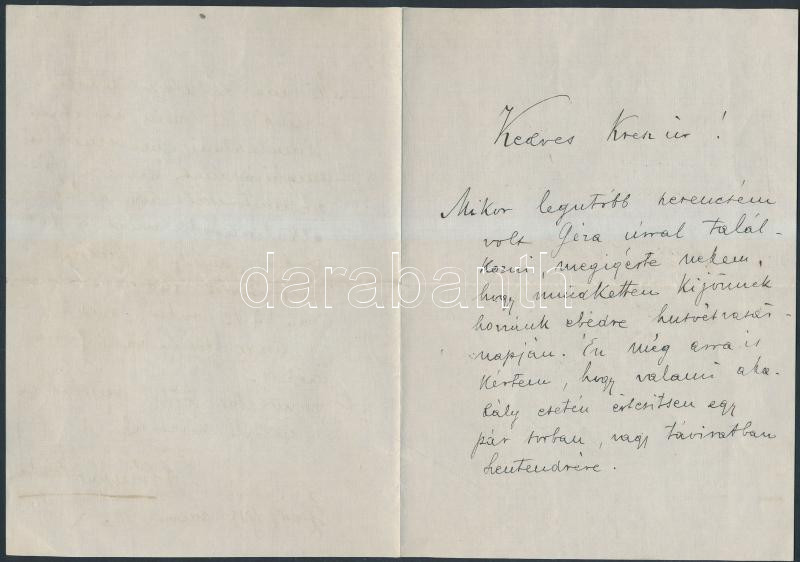 Kedves Kresz úr!
Mikor legutóbb szerencsém
volt Géza úrral talál-
kozni, megigérte nekem,
hogy mindketten kijönnek
hozzánk ebédre husvétvasár-
napján. Én még arra is
kértem, hogy valami aka-
dály esetén értesitsen egy
pár sorban, vagy táviratban
Szentendrére.
darabanth